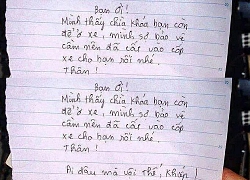 Bạn ơi!
Mình thấy chìa khóa bạn còn
để ở xe, mình sợ bảo vệ
cầm nên đã cất vào cốp
xe cho bạn rồi nhé.
Thân!
Bạn ơi!
Mình thấy chìa khóa bạn còn
để ở xe, mình sợ bảo vệ
cầm nên đã cất vào cốp
xe cho bạn rồi nhé.
Thân!
Đi đâu mà vội thế, Khiếp!